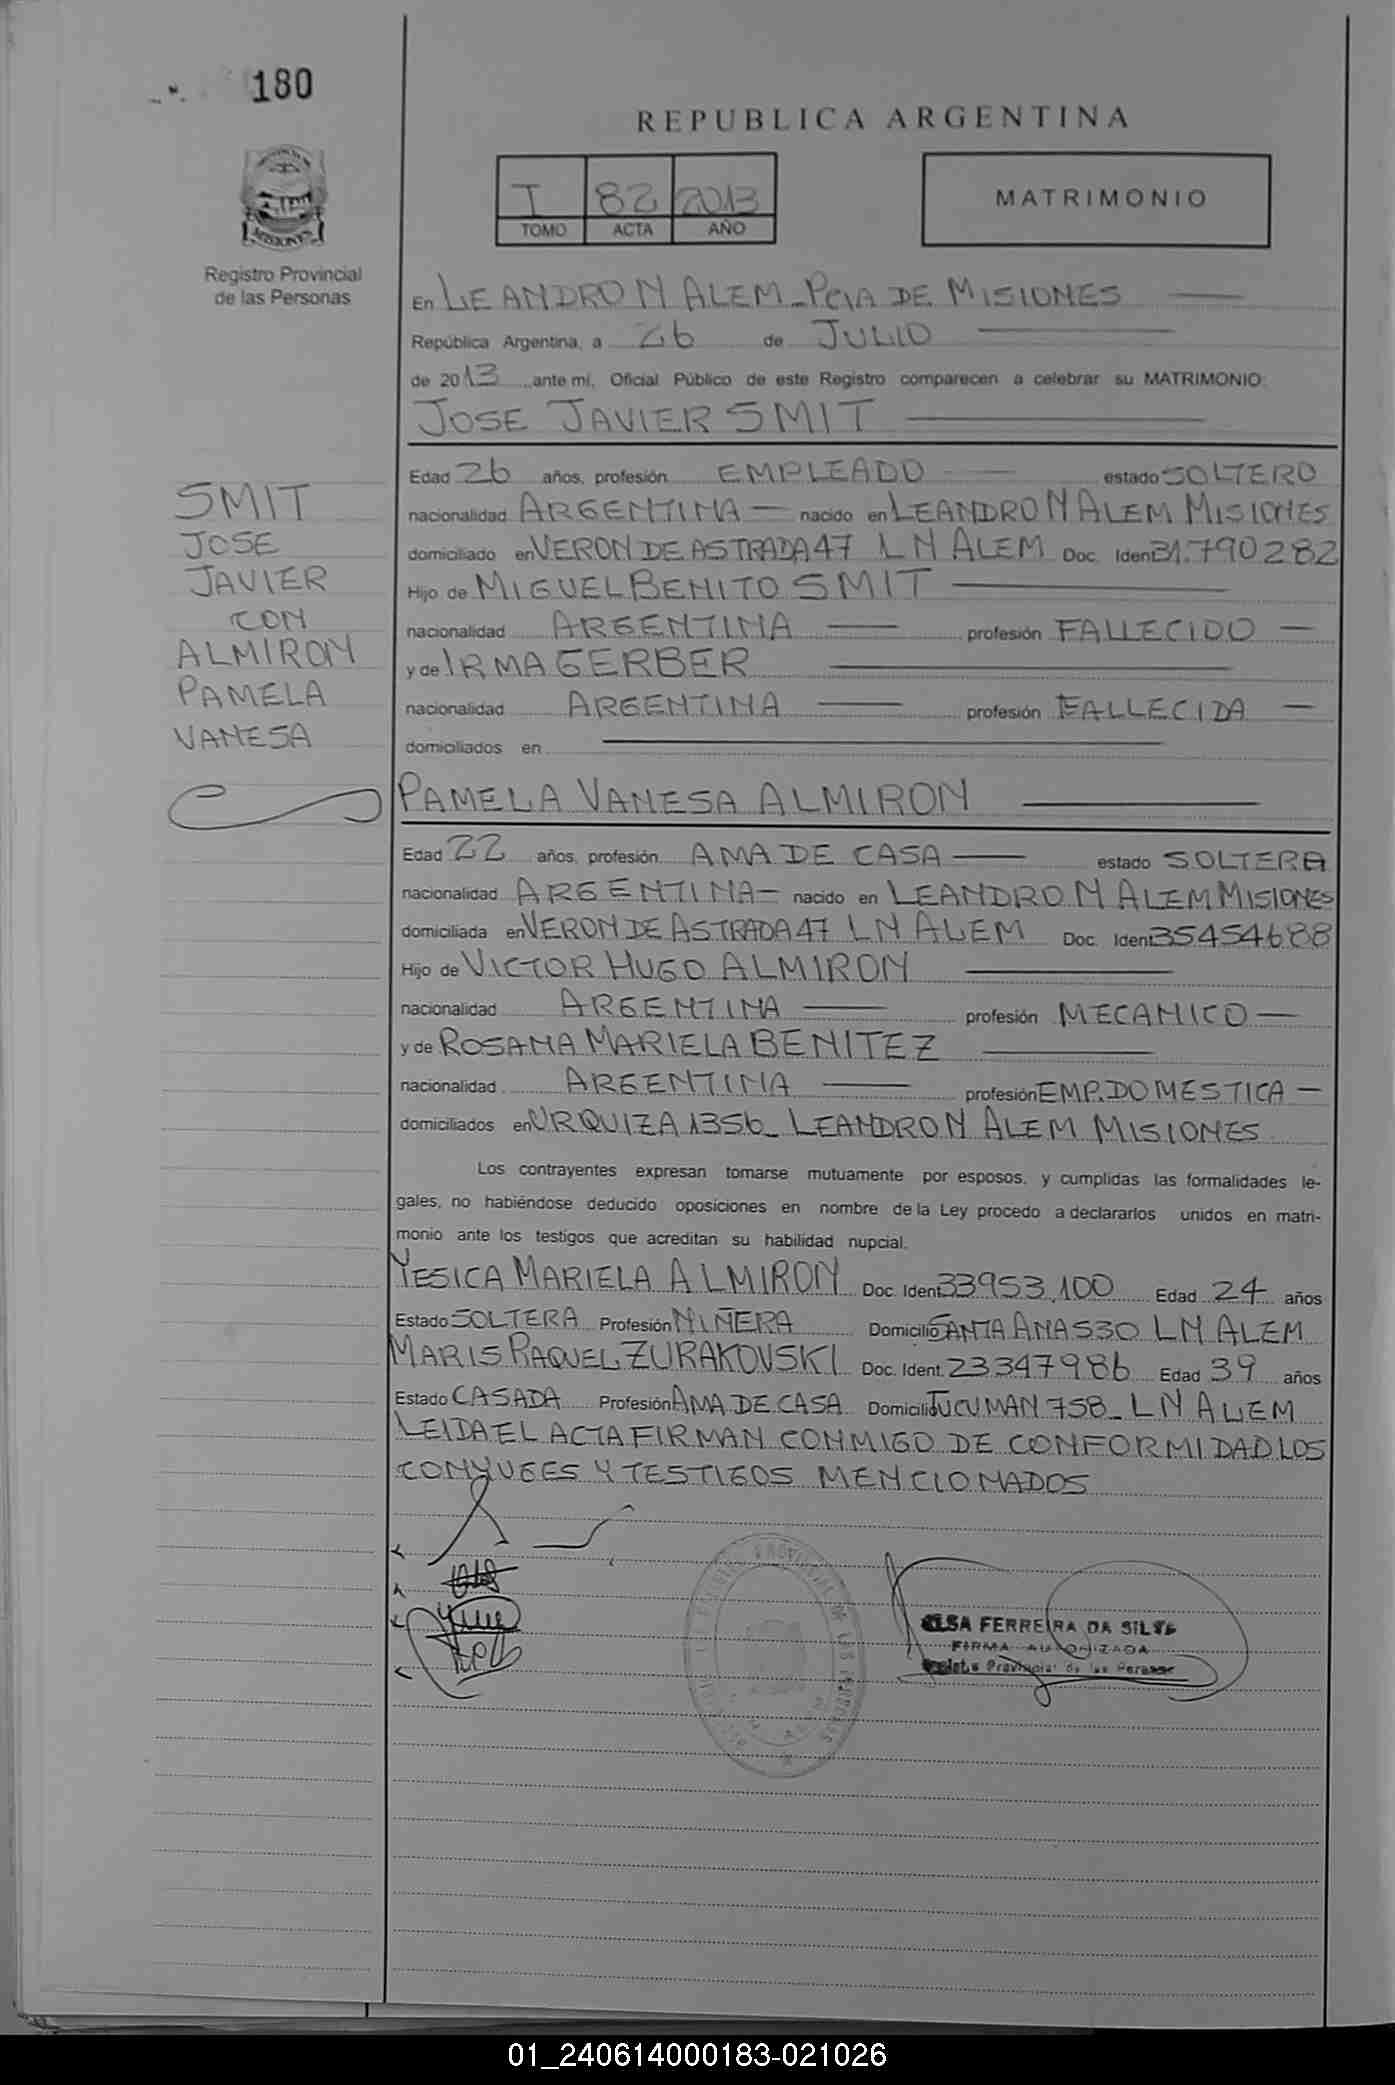 180
REPUBLICA ARGENTINA
I 82 2013
TOMO ACTA AÑO
MATRIMONIO
MISIONES
Registro Provincial
de las Personas
En LEANDRO N ALEM - PCIA DE MISIONES
República Argentina, a 26 de JULIO
de 2013 ante mí, Oficial Público de este Registro comparecen a celebrar su MATRIMONIO:
JOSE JAVIER SMIT
Edad 26 años, profesión EMPLEADO estado SOLTERO
nacionalidad ARGENTINA nacido en LEANDRO N ALEM MISIONES
domiciliado en VERON DE ASTRADA 47 L N ALEM Doc. Ident 31.790282
Hijo de MIGUEL BENITO SMIT
nacionalidad ARGENTINA profesión FALLECIDO
y de IRMA GERBER
nacionalidad ARGENTINA profesión FALLECIDA
domiciliados en
SMIT
JOSE
JAVIER
CON
ALMIRON
PAMELA
VANESA
PAMELA VANESA ALMIRON
Edad 22 años, profesión AMA DE CASA estado SOLTERA
nacionalidad ARGENTINA nacido en LEANDRO N ALEM MISIONES
domiciliada en VERON DE ASTRADA 47 L N ALEM Doc. Ident 35454688
Hijo de VICTOR HUGO ALMIRON
nacionalidad ARGENTINA profesión MECANICO
y de ROSANA MARIELA BENITEZ
nacionalidad ARGENTINA profesión EMP. DOMESTICA
domiciliados en URQUIZA 1356 - LEANDRO N ALEM MISIONES
Los contrayentes expresan tomarse mutuamente por esposos, y cumplidas las formalidades le-
gales, no habiéndose deducido oposiciones en nombre de la Ley procedo a declararlos unidos en matri-
monio ante los testigos que acreditan su habilidad nupcial.
YESICA MARIELA ALMIRON Doc. Ident 33953.100 Edad 24 años
Estado SOLTERA Profesión NIÑERA Domicilio SANTA ANA 530 L N ALEM
MARIS RAQUEL ZURAKOVSKI Doc. Ident. 23347986 Edad 39 años
Estado CASADA Profesión AMA DE CASA Domicilio TUCUMAN 758 - L N ALEM
LEIDA EL ACTA FIRMAN CONMIGO DE CONFORMIDAD LOS
CONYUGES Y TESTIGOS MENCIONADOS
ELSA FERREIRA DA SILVA
FIRMA AUTORIZADA
Registro Provincial de las Personas
01_240614000183-021026